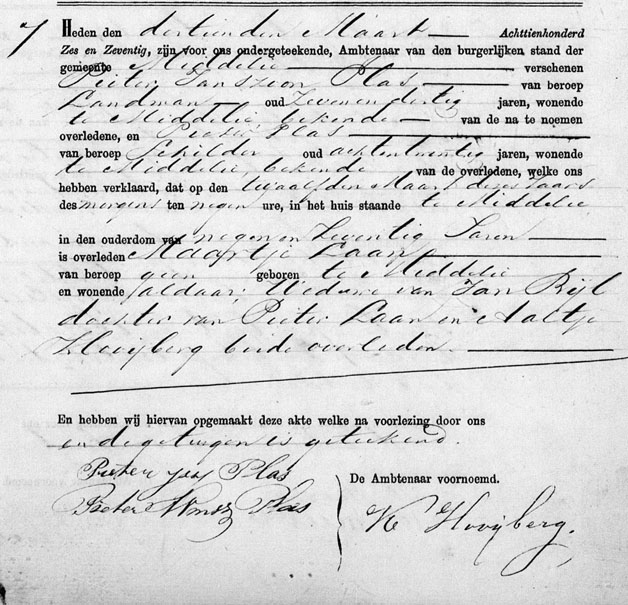 7 Heden den dertienden Maart Achttienhonderd
Zes en Zeventig, zijn voor ons ondergeteekende, Ambtenaar van den burgerlijken stand der
gemeente Middelie verschenen
Pieter Janszoon Plas van beroep
Landman oud Zevenendertig jaren, wonende
te Middelie bekende van de na te noemen
overledene, en Pieter Plas
van beroep Schilder oud achtentwintig jaren, wonende
te Middelie, bekende van de overledene, welke ons
hebben verklaard, dat op den twaalfden Maart dezes Jaars
des morgens ten negen ure, in het huis staande te Middelie
in den ouderdom van negen en Zeventig Jaren
is overleden Maartje Laan
van beroep geen geboren te Middelie
en wonende aldaar, Weduwe van Jan Bijl
dochter van Pieter Laan en Aaltje
Hooijberg beide overleden.
En hebben wij hiervan opgemaakt deze akte welke na voorlezing door ons
en de getuigen is geteekend.
Pieter Plas
De Ambtenaar voornoemd.
Pieter Plas
K Hooijberg,